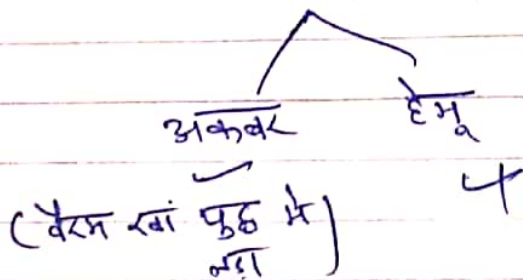 अकबर हेमू
(बैरम खां युद्ध में
लड़ा)